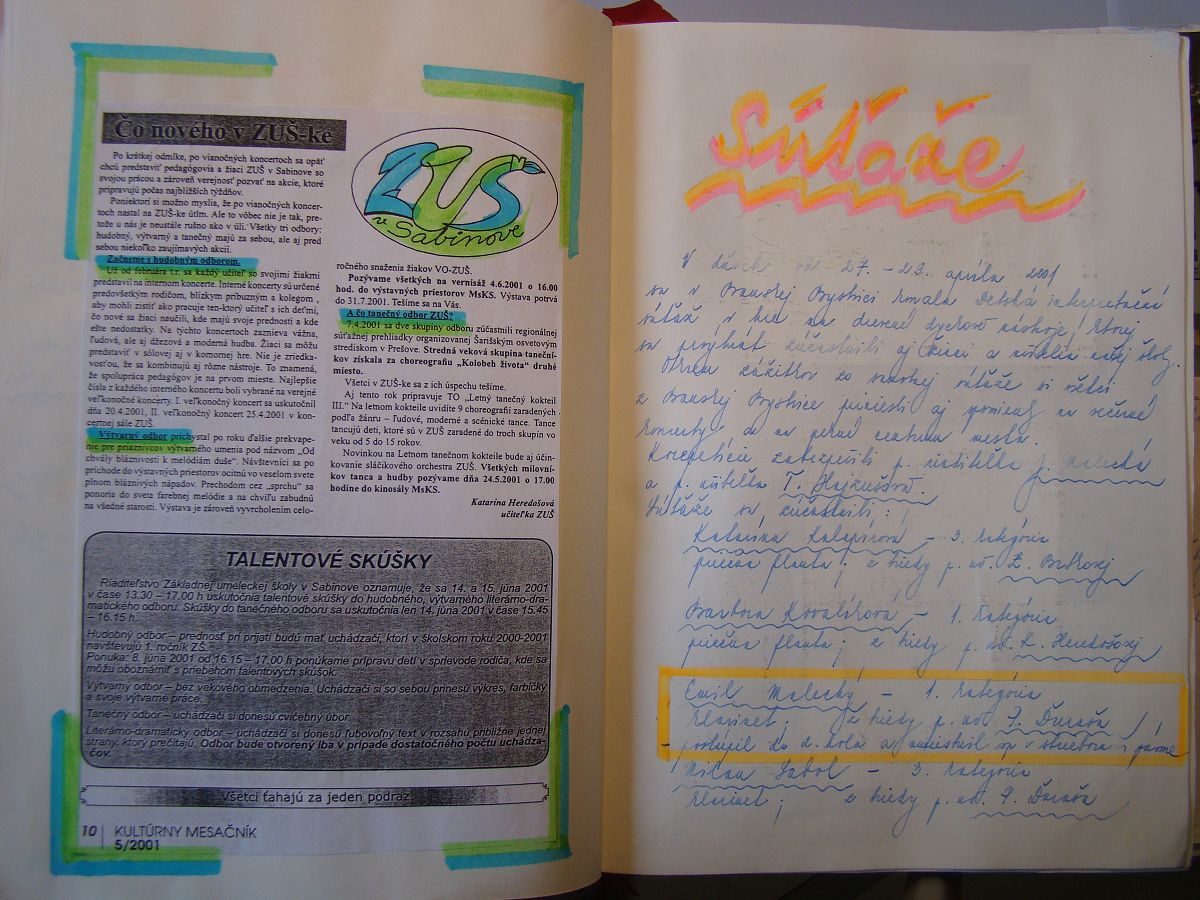 Čo nového v ZUŠ-ke
Po krátkej odmlke, po vianočných koncertoch sa opäť
chcú predstaviť pedagógovia a žiaci ZUŠ v Sabinove so
svojou prácou a zároveň verejnosť pozvať na akcie, ktoré
pripravujú počas najbližších týždňov.
Poniektorí si možno myslia, že po vianočných koncer-
toch nastal na ZUŠ-ke útlm. Ale to vôbec nie je tak, pre-
tože u nás je neustále rušno ako v úli. Všetky tri odbory:
hudobný, výtvarný a tanečný majú za sebou, ale aj pred
sebou niekoľko zaujímavých akcií.
Začneme s hudobným odborom.
Už od februára t.r. sa každý učiteľ so svojimi žiakmi
predstavil na internom koncerte. Interné koncerty sú určené
predovšetkým rodičom, blízkym príbuzným a kolegom ,
aby mohli zistiť ako pracuje ten-ktorý učiteľ s ich deťmi,
čo nové sa žiaci naučili, kde majú svoje prednosti a kde
ešte nedostatky. Na týchto koncertoch zaznieva vážna,
ľudová, ale aj džezová a moderná hudba. Žiaci sa môžu
predstaviť v sólovej aj v komornej hre. Nie je zriedka-
vosťou, že sa kombinujú aj rôzne nástroje. To znamená,
že spolupráca pedagógov je na prvom mieste. Najlepšie
čísla z každého interného koncertu boli vybrané na verejné
veľkonočné koncerty. I. veľkonočný koncert sa uskutočnil
dňa 20.4.2001, II. veľkonočný koncert 25.4.2001 v kon-
certnej sále ZUŠ.
Výtvarný odbor prichystal po roku ďalšie prekvape-
nie pre priaznivcov výtvarného umenia pod názvom „Od
chvály bláznivosti k melódiám duše". Návštevníci sa po
príchode do výstavných priestorov ocitnú vo veselom svete
plnom bláznivých nápadov. Prechodom cez „sprchu" sa
ponoria do sveta farebnej melódie a na chvíľu zabudnú
na všedné starosti. Výstava je zároveň vyvrcholením celo-
ZUŠ
v Sabinove
ročného snaženia žiakov VO-ZUŠ.
Pozývame všetkých na vernisáž 4.6.2001 o 16.00
hod. do výstavných priestorov MsKS. Výstava potrvá
do 31.7.2001. Tešíme sa na Vás.
A čo tanečný odbor ZUŠ?
7.4.2001 sa dve skupiny odboru zúčastnili regionálnej
súťažnej prehliadky organizovanej Šarišským osvetovým
strediskom v Prešove. Stredná veková skupina taneční-
kov získala za choreografiu „Kolobeh života" druhé
miesto.
Všetci v ZUŠ-ke sa z ich úspechu tešíme.
Aj tento rok pripravuje TO „Letný tanečný kokteil
III." Na letnom kokteile uvidíte 9 choreografií zaradených
podľa žánru – ľudové, moderné a scénické tance. Tance
tancujú deti, ktoré sú v ZUŠ zaradené do troch skupín vo
veku od 5 do 15 rokov.
Novinkou na Letnom tanečnom kokteile bude aj účin-
kovanie sláčikového orchestra ZUŠ. Všetkých milovní-
kov tanca a hudby pozývame dňa 24.5.2001 o 17.00
hodine do kinosály MsKS.
Katarína Heredošová
učiteľka ZUŠ
TALENTOVÉ SKÚŠKY
Riaditeľstvo Základnej umeleckej školy v Sabinove oznamuje, že sa 14. a 15. júna 2001
v čase 13.30 – 17.00 h uskutočnia talentové skúšky do hudobného, výtvarného literárno-dra-
matického odboru. Skúšky do tanečného odboru sa uskutočnia len 14. júna 2001 v čase 15.45
– 16.15 h.
Hudobný odbor – prednosť pri prijatí budú mať uchádzači, ktorí v školskom roku 2000-2001
navštevujú 1. ročník ZŠ.
Ponuka: 8. júna 2001 od 16.15 – 17.00 h ponúkame prípravu detí v sprievode rodiča, kde sa
môžu oboznámiť s priebehom talentových skúšok.
Výtvarný odbor – bez vekového obmedzenia. Uchádzači si so sebou prinesú výkres, farbičky
a svoje výtvarné práce.
Tanečný odbor – uchádzači si donesú cvičebný úbor.
Literárno-dramatický odbor – uchádzači si donesú ľubovoľný text v rozsahu približne jednej
strany, ktorý prečítajú. Odbor bude otvorený iba v prípade dostatočného počtu uchádza-
čov.
Všetci ťahajú za jeden podraz.
10 KULTÚRNY MESAČNÍK
5/2001
Súťaže
V dňoch od 27. - 29. apríla 2001
sa v Banskej Bystrici konala Detská interpretačná
súťaž v hre na drevené dychové nástroje, ktorej
sa zúčastnili aj žiaci a učitelia našej školy.
Okrem zážitkov zo samotnej súťaže si všetci
z Banskej Bystrice priniesli aj spomienky na večerné
koncerty, a na pekné centrum mesta.
Korepetície zabezpečili p. riaditeľka J. Malecká
a p. učiteľka T.
Súťaže sa zúčastnili:
Katarína - 3. kategória
priečna flauta; z triedy p. uč.
Barbora Kovalíková - 1. kategória
priečna flauta; z triedy p. uč. K. Heredošovej
Emil Malecký - 1. kategória
klarinet; z triedy p. uč. P. Ďuraša
- postúpil do 2. kola a umiestnil sa v striebornom pásme
Milan Sabol - 3. kategória
klarinet; z triedy p. uč. P. Ďuraša